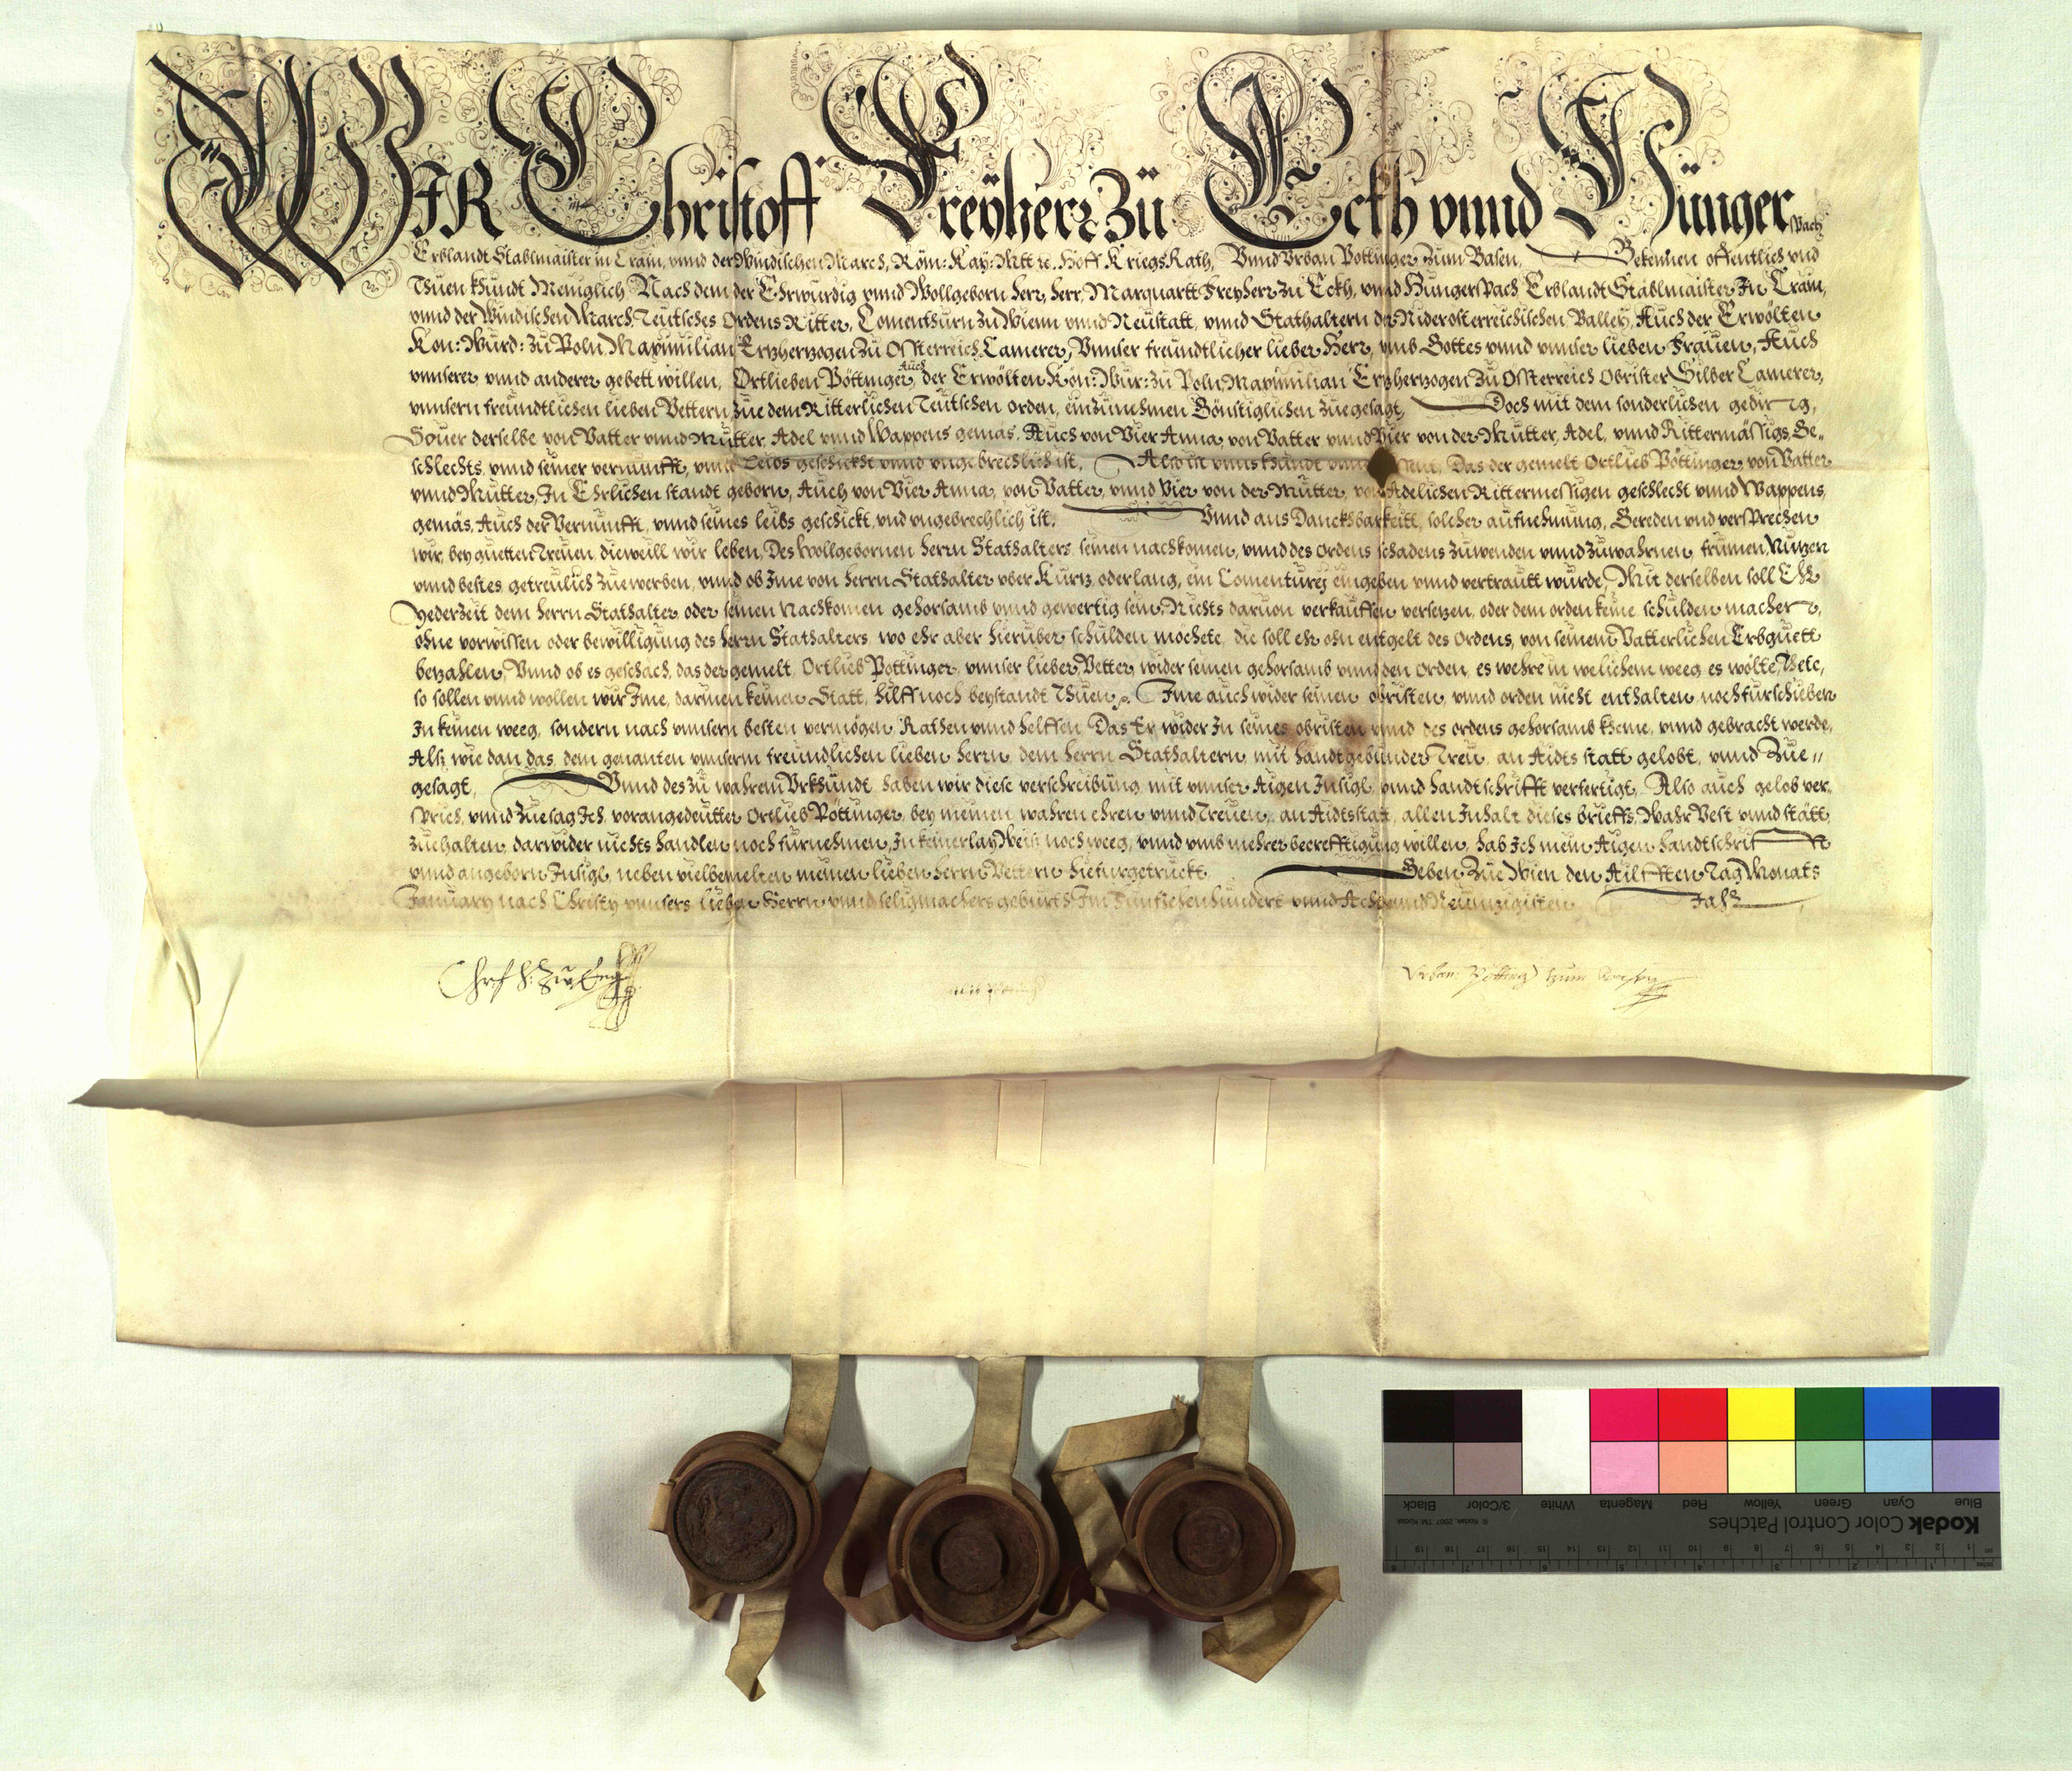 WIR Christoff Freÿherr Zü Eckh vnnd Hünger
spach
Erblandt Stablmaister in Crain, vnnd der Windischen March, Röm: Kay: Mtt rc. Hoff KriegsRath, Vnnd Vrban Pottinger zum Basen, Bekennen offentlich vnd
Thuen khundt Meniglich Nach dem der Ehrwürdig vnnd Wollgeborn herr, herr, Marquartt Freyherr zu Eckh, vnnd Hungerspach, Erblandt Stablmaister In Crain,
vnnd der Windischen March, Teutsches Ordens Ritter, Comenthurn zu Wienn vnnd Neustatt, vnnd Stathaltern der Niderosterreichischen Balley, Auch der Erwölten
Kön: Würd: zu Poln Maximilian Ertzherzogen zu Osterreich Camerer, Vnnser freundtlicher lieber Herr, vmb Gottes vnnd vnnser lieben Frauen, Auch
vnnserer vnnd anderer gebett willen, Ortlieben Pöttinger Auch der Erwölten Kön: Wur: zu Poln Maximilian Ertzherzogen zu Osterreich Obrister Silber Camerer,
vnnsern freundtlichen lieben Vettern, Zue dem Ritterlichen Teutschen orden, einzunehmen Gönstiglichen zuegesagt, Doch mit dem sonderlichen geding,
Souer derselbe von Vatter vnnd Mutter, Adel vnnd Wappens gemäs, Auch von Vier Anna, von Vatter vnnd Vier von der Mutter, Adel, vnnd Rittermässigs, Ge„
schlechts, vnnd seiner vernunfft, vnnd Leibs geschickht vnnd vngebrechlich ist, Also ist vnns khundt vnnd Das der gemelt Ortlieb Pöttinger, von Vatter
vnnd Mutter, In Ehrlichen standt geborn, Auch von Vier Anna, von Vatter, vnnd Vier von der Mutter, von Adelichen Rittermessigen geschlecht vnnd Wappens,
gemäs, Auch der Vernunfft, vnnd seines leibs geschickt, vnd vngebrechlich ist. Vnnd aus Danckbarkeitt, solcher aufnehmung, Gereden vnd versprechen
wir, bey guetten Treuen, dieweill wir leben, Des Wollgebornen herrn Stathalters, seinen nachkomen, vnnd des Ordens schadens zuwenden vnnd zuwahrnen, frumen, Nutzen
vnnd bestes, getreulich zuewerben, vnnd ob Ime von herrn Stathalter vber Kurtz, oder lang, ein Comenturey eingeben vnnd vertrautt wurde, Mit derselben soll Ehr
yederzeit dem herrn Stathalter, oder seinen Nachkomen gehorsamb vnnd gewertig sein, Nichts daruon verkauffen, versetzen, oder dem orden keine schulden machen,
ohne vorwissen oder bewilligung des herrn Stathalters, wo ehr aber hieruber schulden mochete, die soll ehr ohn entgelt des Ordens, von seinem Vatterlichen Erbguett
bezahlen, Vnnd ob es geschach, das der gemelt, Ortlieb Pottinger, vnnser lieber Vetter, wider seinen gehorsamb vnnd den Orden, es wehre in welichem weeg es wölte, thete,
so sollen vnnd wollen wir Ime, darinnen keinen Statt, hilff noch beystandt Thuen, Ime auch wider seinen obristen, vnnd orden nicht enthalten, noch furschieben
In keinen weeg, sondern nach vnnsern besten vermögen, Rathen vnnd helffen Das Er wider In seines obristen vnnd des ordens gehorsamb kheme, vnnd gebracht werde,
Als wie dan das, dem genanten vnnserm freundlichen lieben herrn, dem herrn Stathaltern, mit handtgebunder Treu, an Aidts statt gelobt, vnnd Zue„
gesagt, Vnnd des zu wahrem Vrkhundt, haben wir diese verschreibung mit vnnser Aigen Insigl, vnnd handtschrifft verfertigt, Also auch gelob ver,
sprich, vnnd Zuesag Ich, vorangedeutter Ortlieb Pöttinger, bey meinen wahren ehren vnnd Treuen, an Aidtsstat, allen Inhalt dieses brieffs, Wahr Vest vnnd statt,
zuehalten, darwider nichts handlen noch furnehmen, In keinerlay Weis noch weeg, vnnd vmb mehrer becrefftigung willen, hab Ich mein Aigen handtschrifft
vnnd angeborn Insigl, neben vielbemelten meinen lieben herrn Vettern hiefurgetruckt Geben Zue Wien den Ailfften Tag Monats
January nach Christy vnnsers lieben Herrn vnnd seligmachers geburth Im Funfzehenhundert vnnd Acht vnnd Neunzigisten Jahr
Vrban Pötting zum